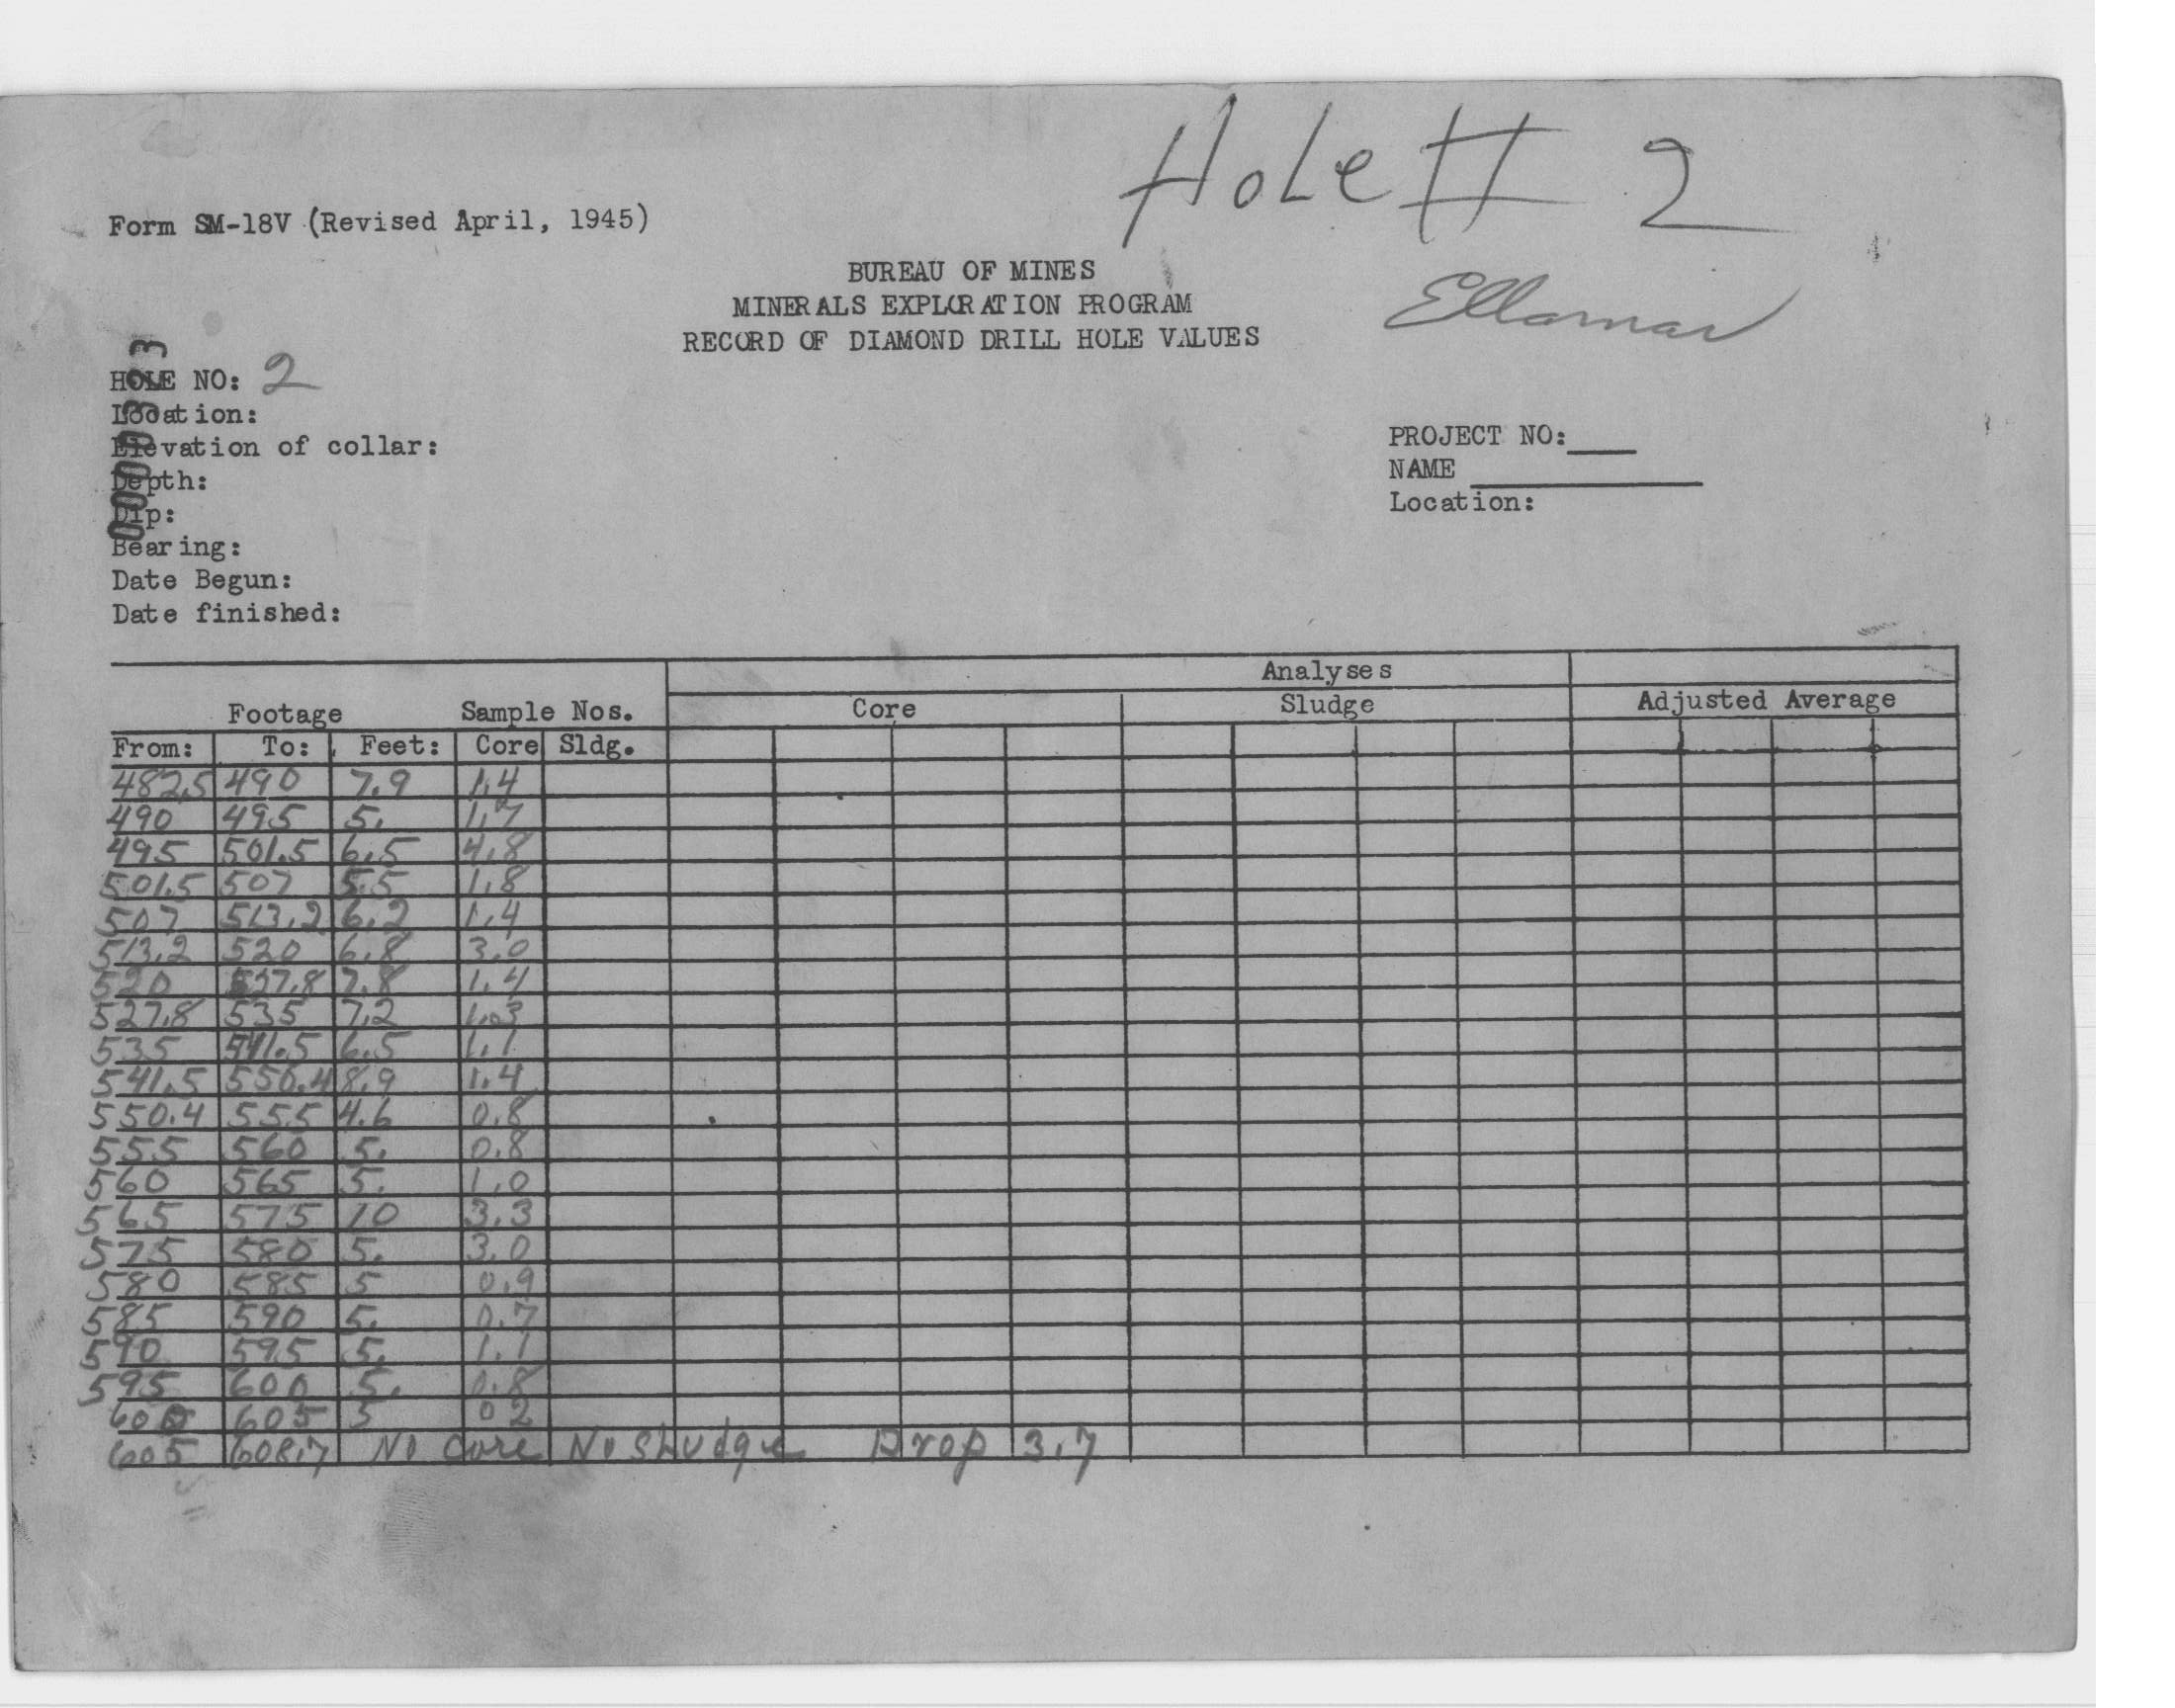 Hole # 2
Form SM-18V (Revised April, 1945)
BUREAU OF MINES
Ellamar
MINERALS EXPLORATION PROGRAM
RECORD OF DIAMOND DRILL HOLE VALUES
HOLE NO: 2
Location:
Elevation of collar:
PROJECT NO:
NAME
Depth:
Location:
Dip:
Bearing:
Date Begun:
Date finished:
Analyses
Footage Sample Nos. Core Sludge Adjusted Average
From: To: Feet: Core Sldg.
482.5 490 7.9 1.4
490 495 5. 1.7
495 501.5 6.5 4.8
501.5 507 5.5 1.8
507 513.2 6.2 1.4
513.2 520 6.8 3.0
520 527.8 7.8 1.4
527.8 535 7.2 1.3
535 541.5 6.5 1.1
541.5 550.4 8.9 1.4
550.4 555 4.6 0.8
555 560 5. 0.8
560 565 5. 1.0
565 575 10 3.3
575 580 5. 3.0
580 585 5 0.9
585 590 5. 0.7
590 595 5. 1.1
595 600 5. 0.8
600 605 5 0 2
605 608.7 No Core No Sludge Drop 3.7